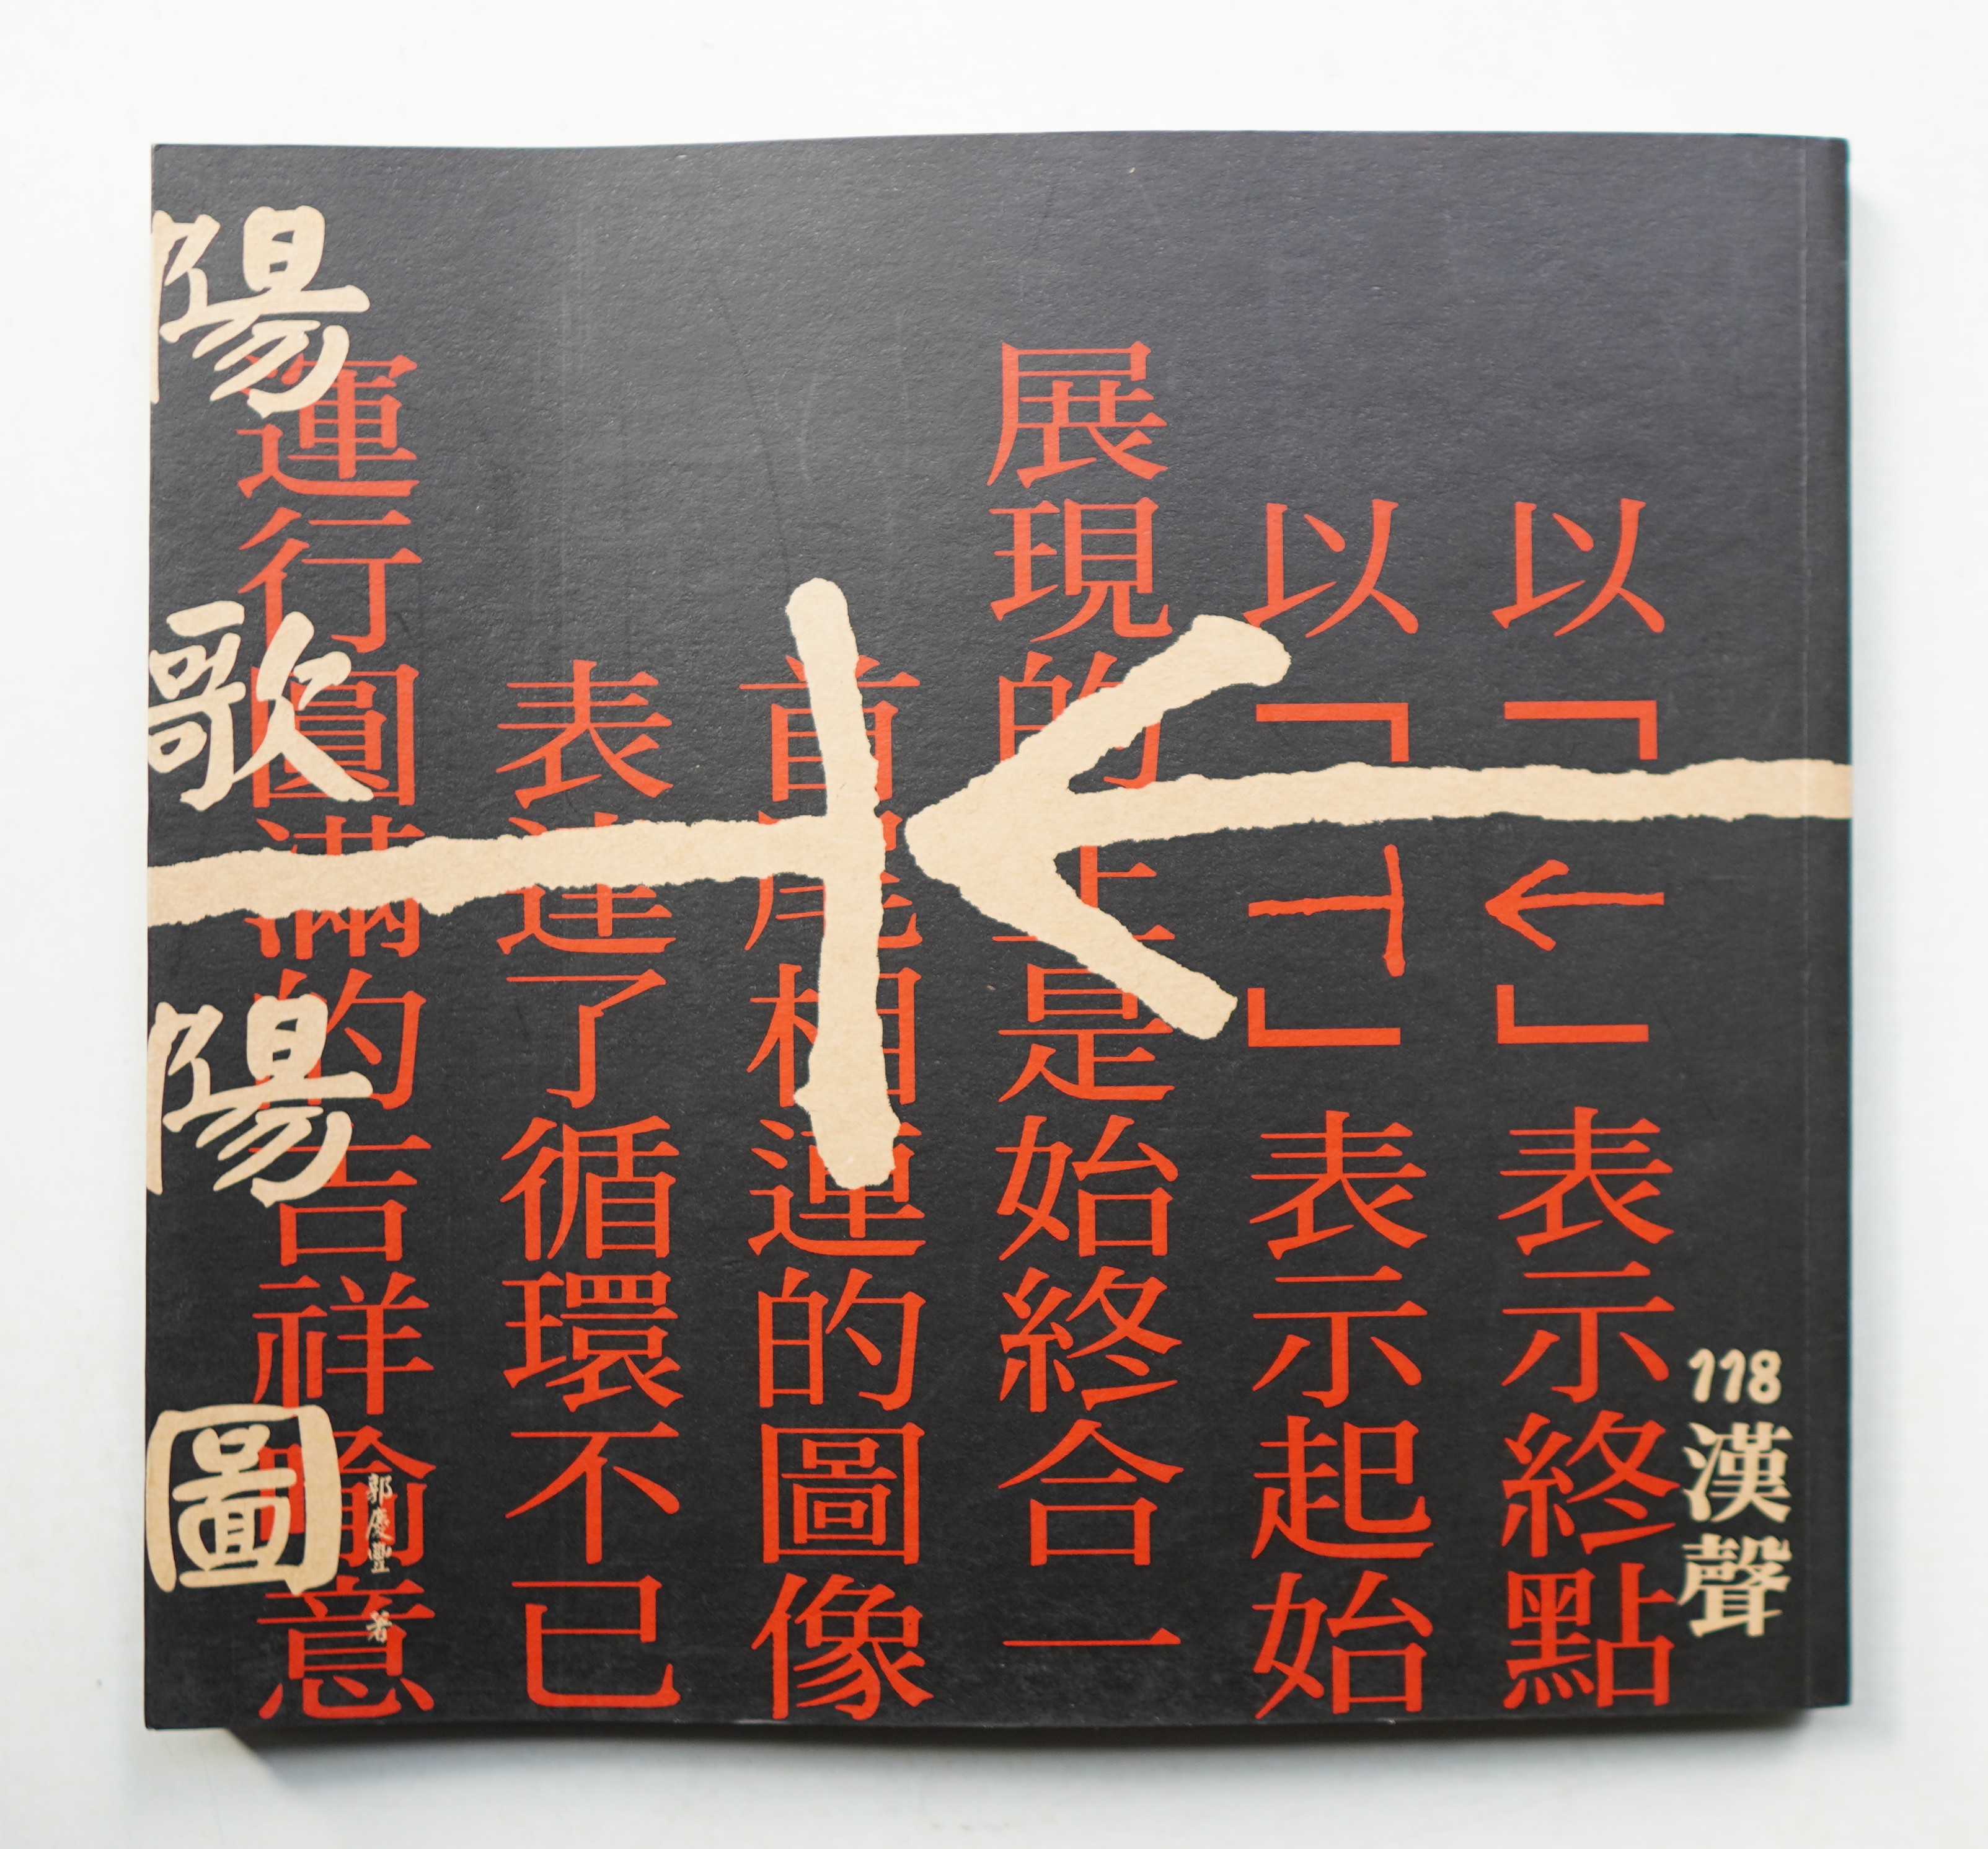 118
漢聲
以「←」表示終點
以「⊣」表示起始
展現的正是始終合一
首尾相連的圖像
表達了循環不已
運行圓滿的吉祥喻意
陽歌陽圖
郭慶豐 著